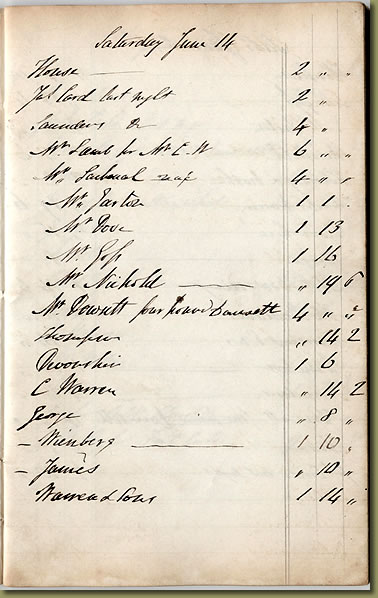 Saturday June 14
House — 2 " "
last night 2 "
Saunders & 4 "
Mr Lamb for Mr C. W 6 " "
Mr 4 " "
Mr 1 1 "
Mr Dove 1 13
Mr Goss 1 16
Mr Nichold — " 19 6
Mr Dowsett four pound Dowsett 4 " "
Thompson " 14 2
Devonshire 1 6
C Warren " 14 2
George " 8 "
– Wienberg — 1 10 "
– James " 10 "
Warren & Sons 1 14 "